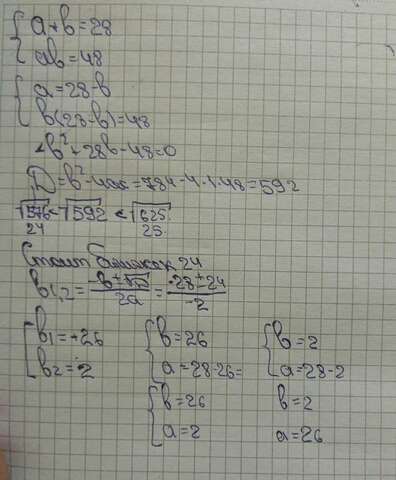 { a+b=28
{ ab=48
{ a=28-b
{ b(28-b)=48
-b²+28b-48=0
D=b²-4ac=784-4·1·48=592
√576<√592<√625
24 25
24
b1,2=(-b±√D)/2a=(-28±24)/-2
[ b1=+26 { b=26 { b=2
[ b2=2 { a=28-26= { a=28-2
{ b=26 b=2
{ a=2 a=26